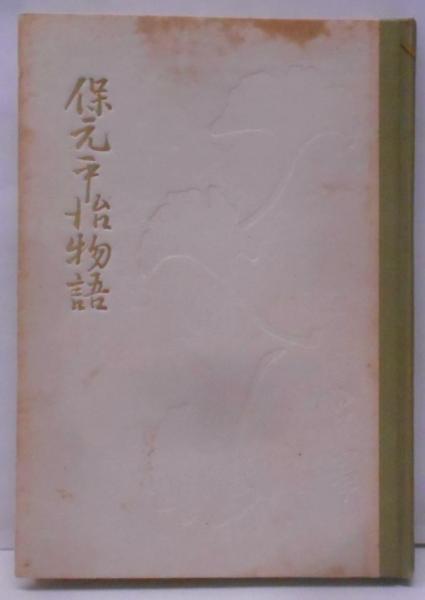 保元平治物語